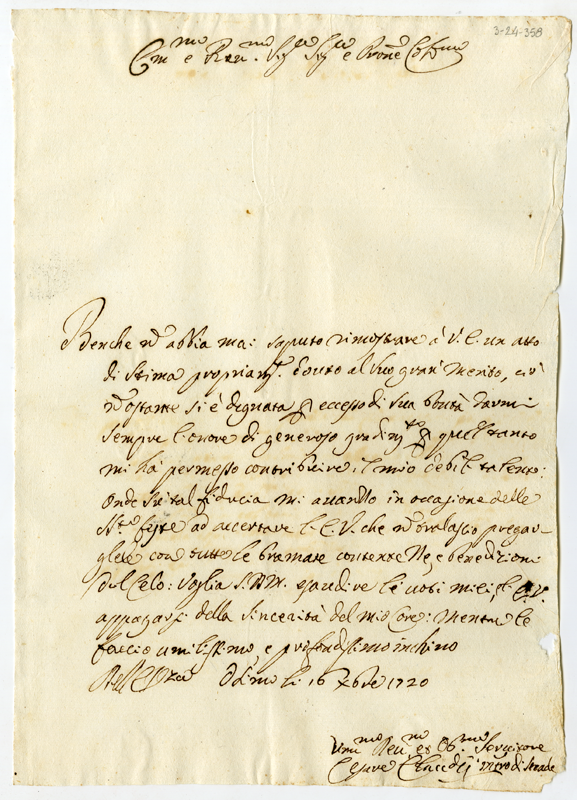 3-24-358
Em.mo e Reu.mo Sig.re Sig.re e Prone Col.mo
Benche nõ abbia mai saputo rimostrare à V. E. un atto
di stima propriam.te douto al suo gran Merito, ciò
nõ ostante si è degnata ꝑ eccesso di sua bontà darmi
sempre l'onore di generoso gradim.to ꝑ quel tanto
mi hà permesso contribuire il mio debil talento:
onde su tal fiducia mi auanzo in occasione delle
S.te feste ad accertare l'E.V. che nõ tralascio pregar
glele con tutte le bramate contentezze e benedizioni
del Celo: Voglia S.D.M. esaudire li uoti miei, e l'E.V.
appagarsi della sincerità del mio Core: Mentre le
faccio umilissimo, e profondissimo inchino
Dell' E.V. Osimo li 16 Xbre 1720
Um.mo Deu.mo et Ob.mo Seruitore
Cesare di Strade